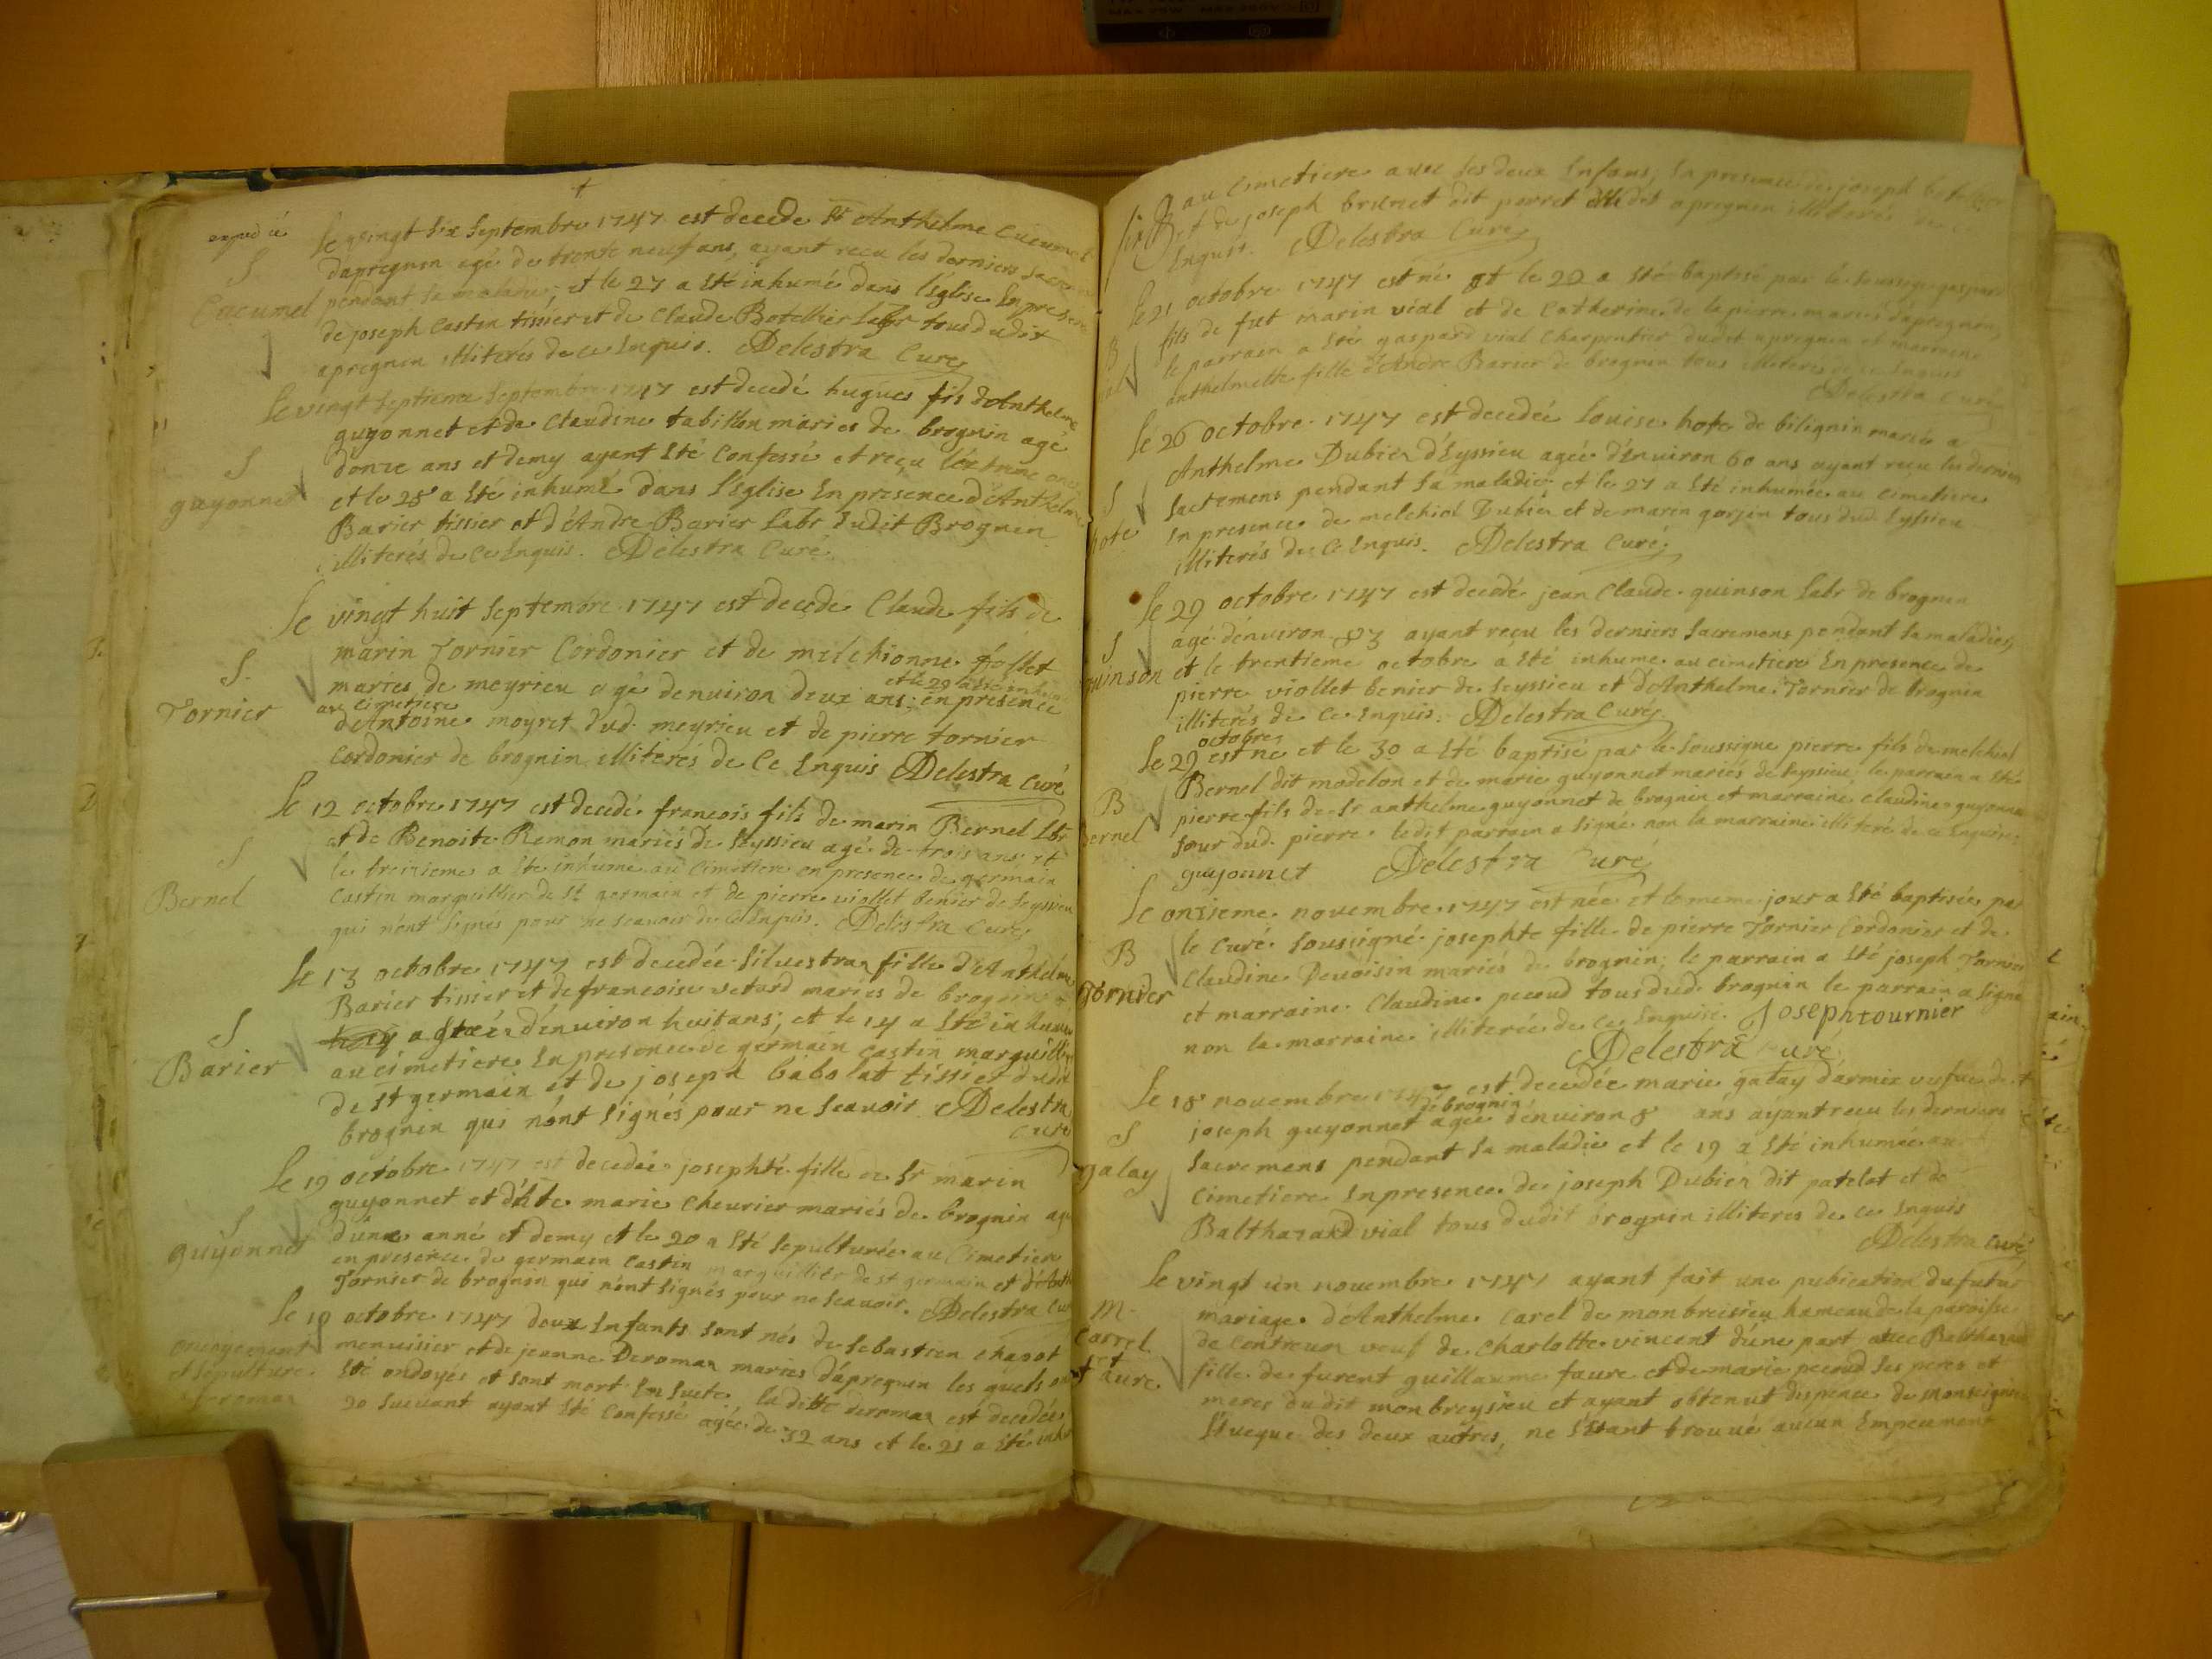 expedié
S
Cucumel
Le vingt six Septembre 1747 est decede Sr Anthelme Cucumel
dapregnin agé de trente neuf ans, ayant reçu les derniers sacrem
pendant sa maladie; et le 27 a Eté inhumé dans l'Eglise En presen
de joseph Castin tissier et de Claude Botellier Labr tous dudit
apregnin illiterés de ce Enquis. Delestra Curé
S
guyonnet
Le vingt septieme Septembre 1747 est decedé hugues fils d'Anthelme
guyonnet et de Claudine tabillon mariés de brognin agé
donze ans et demy ayant Eté Confessé et reçu
et le 28 a Eté inhumé dans l'Eglise En presence d'Anthelme
Barier tissier et d'Andre Barier Labr dudit Brognin
illiterés de ce Enquis. Delestra Curé
S.
Tornier
Le vingt huit Septembre 1747 est decede Claude fils de
marin Tornier Cordonier et de melchionne follet
maries de meyrieu agé denviron deux ans; et le 29 a Eté inhu en presence
au cimetiere
d'Antoine moyret dud. meyrieu et de pierre tornier
Cordonier de brognin illiterés de Ce Enquis Delestra Curé
S
Bernel
Le 12 octobre 1747 est decedé francois fils de marin Bernel Lbr
et de Benoite Remon mariés de Seyssieu agé de trois ans; et
le treizieme a Eté inhumé au Cimetiere en presence de germain
Castin marguillier de St germain et de pierre viollet benier de Seyssieu
qui n'ont signés pour ne scavoir de ce Enquis. Delestra Curé
S
Barier
Le 13 octobre 1747 est decedée Silvestra fille d'Anthelme
Barier tissier et de francoise vetard maries de brognin
agée d'environ huit ans; et le 14 a Eté inhumé
au cimetiere En presence de germain Castin marguillier
de St germain et de joseph babolat tissier dudit
brognin qui n'ont signés pour ne scavoir Delestra
Curé
S
guyonnet
Le 19 octobre 1747 est decedée josephté fille de Sr marin
guyonnet et d'hte marie Chevrier mariés de brognin agé
d'une anné et demy et le 20 a Eté sepulturée au Cimetiere
en presence de germain Castin marguillier de st germain et d'Anth
Tornier de brognin qui n'ont signés pour ne scavoir. Delestra Cur
et sepulture
deroman
Le 19 octobre 1747 deux Enfants sont nés de Sebastien chapot
menuisier et de jeanne Deroman maries d'apregnin les quels ont
Eté ondoyés et sont mort En suete, la ditte deroman est decedée
20 suivant ayant Eté Confessé agée de 32 ans et le 21 a Eté inhu
au Cimetiere avec ses deux Enfans; En presence de joseph botellier
et de joseph brunet dit perret dudit apregnin illiterés de ce
Enquis. Delestra Curé
B
Le 21 octobre 1747 est né et le 22 a Eté baptisé par le soussigné gaspard
fils de fut marin vial et de Catherine de la pierre mariés d'apregnin,
le parrain a Eté gaspard vial Charpentier dudit apregnin et marraine
anthelmette fille d'Andre Barier de brognin tous illiteres de ce Enquis
Delestra Curé
S
hote
Le 26 octobre 1747 est decedée Louise hote de bilignin mariée a
Anthelme Dubien d'Eyssieu agée d'Environ 60 ans ayant reçu les derniers
sacremens pendant sa maladie et le 27 a Eté inhumée au cimetiere
En presence de melchiol Dubien et de marin gorjin tous dud. Eyssieu
illiterés de Ce Enquis. Delestra Curé
S
quinson
Le 29 octobre 1747 est decedé jean Claude quinson Labr de brognin
agé d'environ 83 ayant reçu les derniers sacremens pendant sa maladie,
et le trentieme octobre a Eté inhume au cimetiere En presence de
pierre viollet benier de Seyssieu et d'Anthelme Tornier de brognin
illiterés de ce Enquis. Delestra Curé
B
bernel
octobre
Le 29 est né et le 30 a Eté baptisé par le Soussigné pierre fils de melchiol
Bernel dit modelon et de marie guyonnet mariés de Seyssieu; le parrain a Eté
pierre fils de Sr anthelme guyonnet de brognin et marraine claudine guyonnet
sœur dud. pierre. ledit parrain a signé non la marraine illiteré de ce Enquise
guyonnet Delestra Curé
B
Tornier
Le onzieme novembre 1747 est née et le meme jour a Eté baptisée par
le Curé soussigné josephte fille de pierre Tornier Cordonier et de
Claudine Devoisin mariés de brognin; le parrain a Eté joseph Tornier
et marraine Claudine pecoud tous dud. brognin le parrain a signé
non la marraine illiterée de ce Enquise. Joseph tournier
Delestra Curé
S
galay
Le 18 novembre 1747 est decedée marie galay d'armix vefue de
joseph guyonnet de brognin agée d'environ 8 ans ayant recu les derniers
sacremens pendant sa maladie et le 19 a Eté inhumée au
Cimetiere En presence de joseph Dubien dit patelat et de
Balthazard vial tous dudit brognin illiteres de ce Enquis
Delestra Curé
M.
Carrel
et
faure
Le vingt un novembre 1747 ayant fait une pubication du futur
mariage d'Anthelme Carel de monbreisieu hameau de la paroisse
de Contrevoz veuf de Charlotte vincent d'une part avec Balthazard
fille de furent guillaume faure et de marie pecoud ses peres et
meres dudit monbreysieu et ayant obtenut dispence de monseigneur
l'Eveque des deux autres, ne s'Etant trouvé aucun Empeument